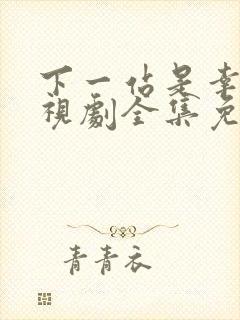 下一站是幸
視劇全集免
青青衣